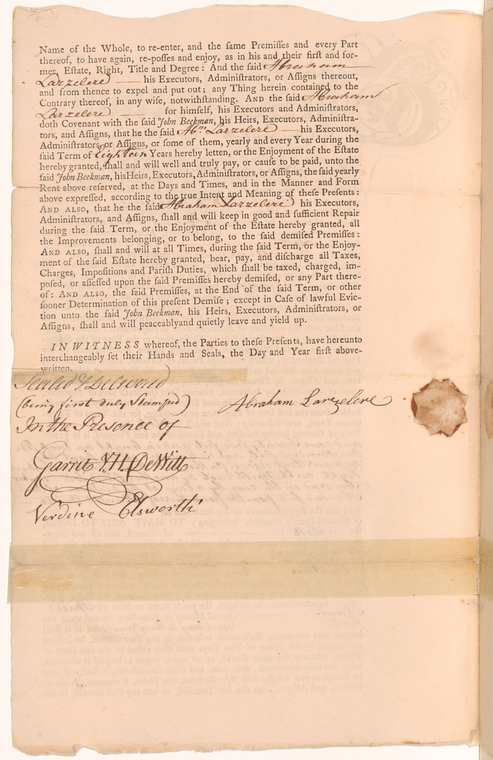 Name of the Whole, to re-enter, and the same Premisses and every Part
thereof, to have again, re-possess and enjoy, as in his and their first and for-
mer, Estate, Right, Title and Degree: And the said Abraham
Larzelere his Executors, Administrators, or Assigns thereout,
and from thence to expel and put out; any Thing herein contained to the
Contrary thereof, in any wise, notwithstanding. AND the said Abraham
Larzelere for himself, his Executors and Administrators,
doth Covenant with the said John Beekman, his Heirs, Executors, Administra-
tors, and Assigns, that he the said Abm Larzelere his Executors,
Administrators, or Assigns, or some of them, yearly and every Year during the
said Term of Eighteen Years hereby letten, or the Enjoyment of the Estate
hereby granted, shall and will well and truly pay, or cause to be paid, unto the
said John Beekman, his Heirs, Executors, Administrators, or Assigns, the said yearly
Rent above reserved, at the Days and Times, and in the Manner and Form
above expressed, according to the true Intent and Meaning of these Presents:
AND ALSO, that he the said Abraham Larzelere his Executors,
Administrators, and Assigns, shall and will keep in good and sufficient Repair
during the said Term, or the Enjoyment of the Estate hereby granted, all
the Improvements belonging, or to belong, to the said demised Premisses:
AND ALSO, shall and will at all Times, during the said Term, or the Enjoy-
ment of the said Estate hereby granted, bear, pay, and discharge all Taxes,
Charges, Impositions and Parish Duties, which shall be taxed, charged, im-
posed, or assessed upon the said Premisses hereby demised, or any Part there-
of: AND ALSO, the said Premisses, at the End of the said Term, or other
sooner Determination of this present Demise; except in Case of lawful Evic-
tion unto the said John Beekman, his Heirs, Executors, Administrators, or
Assigns, shall and will peaceably and quietly leave and yield up.
IN WITNESS whereof, the Parties to these Presents, have hereunto
interchangeably set their Hands and Seals, the Day and Year first above-
written.
Sealed & Delivered
(being first duly Stamped) Abraham Larzelere
In the Presence of
Garrit V.H. DeWitt
Verdine Elsworth